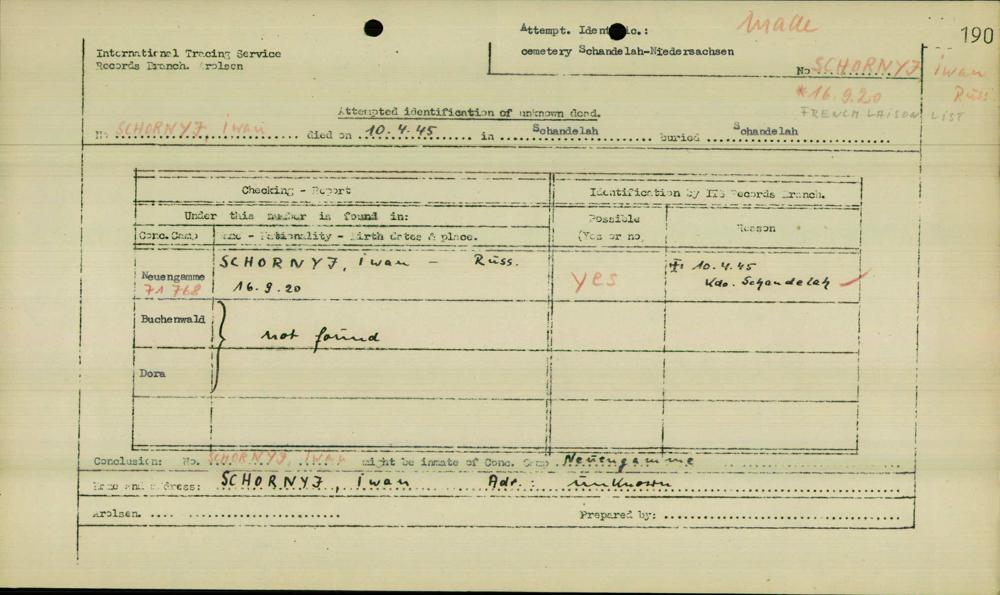 Made
190
Attempt. Identific.:
cemetery Schandelah-Niedersachsen
International Tracing Service
Records Branch. Arolsen
No SCHORNYJ iwan
*16.9.20 Russ
FRENCH LAISON LIST
Attempted identification of unknown dead.
No SCHORNYJ, iwan died on 10.4.45 in Schandelah buried Schandelah
Checking - Report
Identification by ITS Records Branch.
Under this number is found in:
Possible
(Yes or no)
Reason
Conc.Camp
Name - Nationality - Birth dates & place.
Neuengamme
71768
SCHORNYJ, iwan - Russ.
16.9.20
yes
10.4.45
Kdo. Schandelah
Buchenwald
not found
Dora
Conclusion: No. SCHORNYJ, iwan might be inmate of Conc. Camp Neuengamme
Name and address: SCHORNYJ, iwan Adr.: unknown
Arolsen. ....
Prepared by: